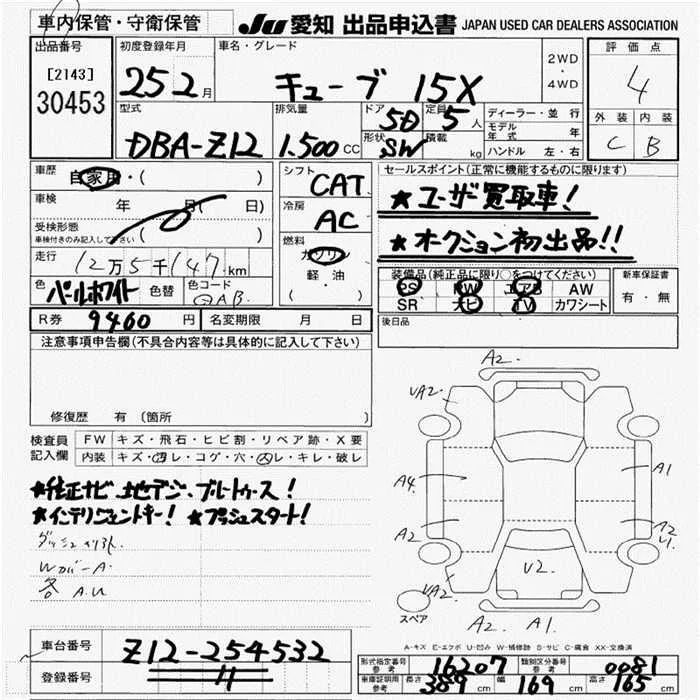 車内保管・守衛保管
JU 愛知 出品申込書 JAPAN USED CAR DEALERS ASSOCIATION
出品番号
[2143]
30453
初度登録年月
25 2月
車名・グレード
キューブ 15X
2WD
・
4WD
評価点
4
外装 内装
C B
型式
DBA-Z12
排気量
1.500 CC
ドア
5D
形状
SW
定員
5人
積載
kg
ディーラー・並行
モデル年式 年
ハンドル 左・右
車歴
自家用・( )
車検
年 月( 日)
受検形態
車検付きのみ記入して下さい ( )
走行
12万5千147km
色
パールホワイト
色替
色コード
QAB
シフト
CAT
冷房
AC
燃料
ガソリン
軽・油
( ・ )
セールスポイント(正常に機能するものに限ります)
★ユーザー買取車!
★オークション初出品!!
装備品(純正品に限り○をつけてください)
PS PW エアB AW
SR ナビ TV カワシート
新車保証書
有・無
R券 9460円
名変期限 月 日
後日品
注意事項申告欄(不具合内容等は具体的に記入して下さい)
修復歴 有(箇所 )
検査員記入欄
FW キズ・飛石・ヒビ割・リペア跡・X要
内装 キズ・ヨゴレ・コゲ・穴・スレ・キレ・破レ
★純正ナビ 地デジ・ブルートゥース!
★インテリジェントキー! ★プッシュスタート!
WカバーA
各 A.U
A2
UA2
A4
A1
A2
A2
U1
V2
UA2
A2 A1
スペア
A-キズ E-エクボ U-凹み W-補修跡 S-サビ C-腐食 XX-交換済
車台番号
Z12-254532
登録番号
型式指定番号 参考 16207
類別区分番号 参考 0081
車庫証明用 参考 長さ 389cm 幅 169cm 高さ 165cm